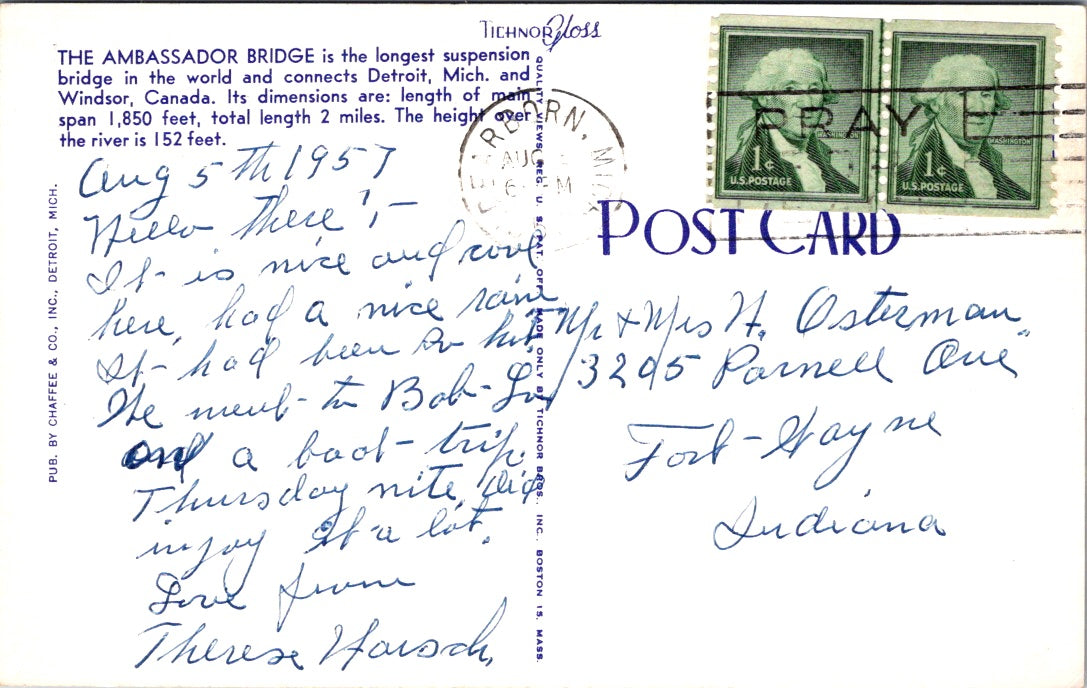 TICHNOR Gloss
THE AMBASSADOR BRIDGE is the longest suspension
bridge in the world and connects Detroit, Mich. and
Windsor, Canada. Its dimensions are: length of main
span 1,850 feet, total length 2 miles. The height over
the river is 152 feet.
Aug 5th 1957
Hello there!, -
It is nice and cool
here, had a nice rain
It had been so hot,
We went to Bob-Lo
on a boat trip
Thursday nite, did
injoy it a lot.
Love from
Therese Harsch,
PUB. BY CHAFFEE & CO., INC., DETROIT, MICH.
QUALITY VIEWS, REG. U. S. PAT. OFF. MADE ONLY BY TICHNOR BROS., INC., BOSTON 15, MASS.
RBORN, MI
AUG
6 PM
PRAY
1¢
WASHINGTON
U.S. POSTAGE
1¢
WASHINGTON
U.S. POSTAGE
POST CARD
Mr & Mrs H. Osterman
3205 Parnell Ave
Fort-Wayne
Indiana